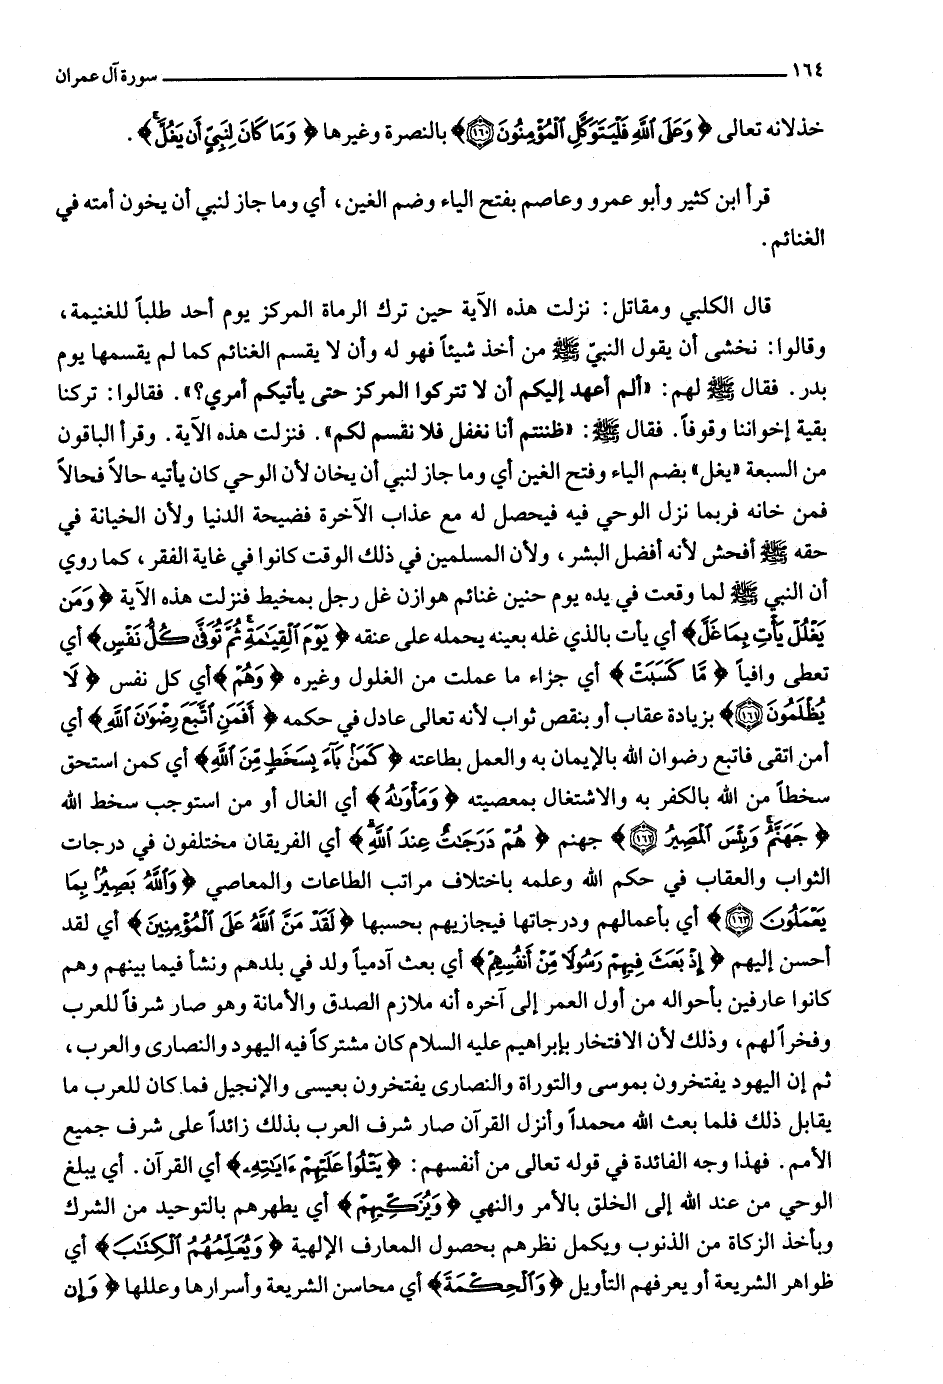 ١٦٤ سورة آل عمران
خذلانه تعالى ﴿ وَعَلَى ٱللَّهِ فَلْيَتَوَكَّلِ ٱلْمُؤْمِنُونَ ۝١٦٠﴾ بالنصرة وغيرها ﴿ وَمَا كَانَ لِنَبِيٍّ أَن يَغُلَّ ۚ﴾ .
قرأ ابن كثير وأبو عمرو وعاصم بفتح الياء وضم الغين، أي وما جاز لنبي أن يخون أمته في
الغنائم .
قال الكلبي ومقاتل: نزلت هذه الآية حين ترك الرماة المركز يوم أحد طلباً للغنيمة،
وقالوا: نخشى أن يقول النبيّ ﷺ من أخذ شيئاً فهو له وأن لا يقسم الغنائم كما لم يقسمها يوم
بدر. فقال ﷺ لهم: «ألم أعهد إليكم أن لا تتركوا المركز حتى يأتيكم أمري؟». فقالوا: تركنا
بقية إخواننا وقوفاً. فقال ﷺ: «ظننتم أنا نغفل فلا نقسم لكم». فنزلت هذه الآية. وقرأ الباقون
من السبعة «يغل» بضم الياء وفتح الغين أي وما جاز لنبي أن يخان لأن الوحي كان يأتيه حالاً فحالاً
فمن خانه فربما نزل الوحي فيه فيحصل له مع عذاب الآخرة فضيحة الدنيا ولأن الخيانة في
حقه ﷺ أفحش لأنه أفضل البشر، ولأن المسلمين في ذلك الوقت كانوا في غاية الفقر، كما روي
أن النبي ﷺ لما وقعت في يده يوم حنين غنائم هوازن غل رجل بمخيط فنزلت هذه الآية ﴿ وَمَن
يَغْلُلْ يَأْتِ بِمَا غَلَّ﴾ أي يأت بالذي غله بعينه يحمله على عنقه ﴿ يَوْمَ ٱلْقِيَٰمَةِ ۚ ثُمَّ تُوَفَّىٰ كُلُّ نَفْسٍ﴾ أي
تعطى وافياً ﴿ مَّا كَسَبَتْ ﴾ أي جزاء ما عملت من الغلول وغيره ﴿ وَهُمْ ﴾أي كل نفس ﴿ لَا
يُظْلَمُونَ ۝١٦١﴾ بزيادة عقاب أو بنقص ثواب لأنه تعالى عادل في حكمه ﴿ أَفَمَنِ ٱتَّبَعَ رِضْوَٰنَ ٱللَّهِ ﴾ أي
أمن اتقى فاتبع رضوان الله بالإيمان به والعمل بطاعته ﴿ كَمَنۢ بَآءَ بِسَخَطٍ مِّنَ ٱللَّهِ ﴾ أي كمن استحق
سخطاً من الله بالكفر به والاشتغال بمعصيته ﴿ وَمَأْوَىٰهُ ﴾ أي الغال أو من استوجب سخط الله
﴿ جَهَنَّمُ ۚ وَبِئْسَ ٱلْمَصِيرُ ۝١٦٢﴾ جهنم ﴿ هُمْ دَرَجَٰتٌ عِندَ ٱللَّهِ ۗ﴾ أي الفريقان مختلفون في درجات
الثواب والعقاب في حكم الله وعلمه باختلاف مراتب الطاعات والمعاصي ﴿ وَٱللَّهُ بَصِيرٌۢ بِمَا
يَعْمَلُونَ ۝١٦٣﴾ أي بأعمالهم ودرجاتها فيجازيهم بحسبها ﴿ لَقَدْ مَنَّ ٱللَّهُ عَلَى ٱلْمُؤْمِنِينَ ﴾ أي لقد
أحسن إليهم ﴿ إِذْ بَعَثَ فِيهِمْ رَسُولًا مِّنْ أَنفُسِهِمْ ﴾ أي بعث آدمياً ولد في بلدهم ونشأ فيما بينهم وهم
كانوا عارفين بأحواله من أول العمر إلى آخره أنه ملازم الصدق والأمانة وهو صار شرفاً للعرب
وفخراً لهم، وذلك لأن الافتخار بإبراهيم عليه السلام كان مشتركاً فيه اليهود والنصارى والعرب،
ثم إن اليهود يفتخرون بموسى والتوراة والنصارى يفتخرون بعيسى والإنجيل فما كان للعرب ما
يقابل ذلك فلما بعث الله محمداً وأنزل القرآن صار شرف العرب بذلك زائداً على شرف جميع
الأمم. فهذا وجه الفائدة في قوله تعالى من أنفسهم: ﴿ يَتْلُوا۟ عَلَيْهِمْ ءَايَٰتِهِۦ ﴾ أي القرآن. أي يبلغ
الوحي من عند الله إلى الخلق بالأمر والنهي ﴿ وَيُزَكِّيهِمْ ﴾ أي يطهرهم بالتوحيد من الشرك
وبأخذ الزكاة من الذنوب ويكمل نظرهم بحصول المعارف الإلهية ﴿ وَيُعَلِّمُهُمُ ٱلْكِتَٰبَ ﴾ أي
ظواهر الشريعة أو يعرفهم التأويل ﴿ وَٱلْحِكْمَةَ ﴾ أي محاسن الشريعة وأسرارها وعللها ﴿ وَإِن